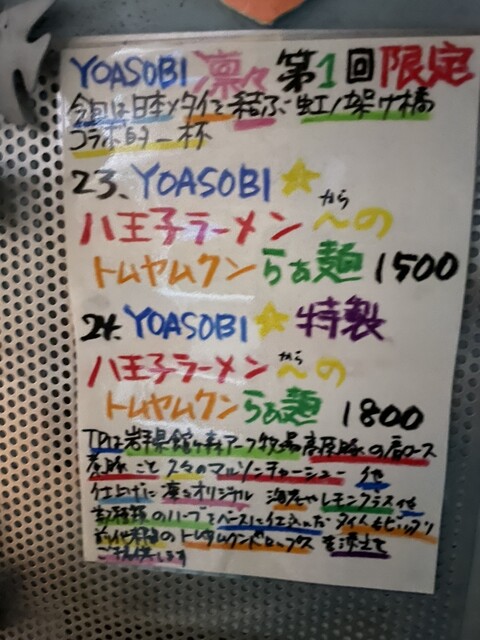 YOASOBI 凛々 第1回 限定
今回は日本とタイを結ぶ虹ノ架ケ橋
コラボ的一杯
23、YOASOBI☆
八王子ラーメン 〜から〜の
トムヤムクン らぁ麺 1500
24. YOASOBI☆特製
八王子ラーメン 〜から〜の
トムヤムクン らぁ麺 1800
TPは岩手県館ヶ森アーク牧場高原豚の肩ロース
煮豚 ごと 久々のマルゾンチャーシュー 他
仕上げに 凛々オリジナル 海老やレモングラス他
数種類のハーブをベースに仕込んだ タイ人もビックリ
のトムヤムクンドロップス を添えて
ご提供します